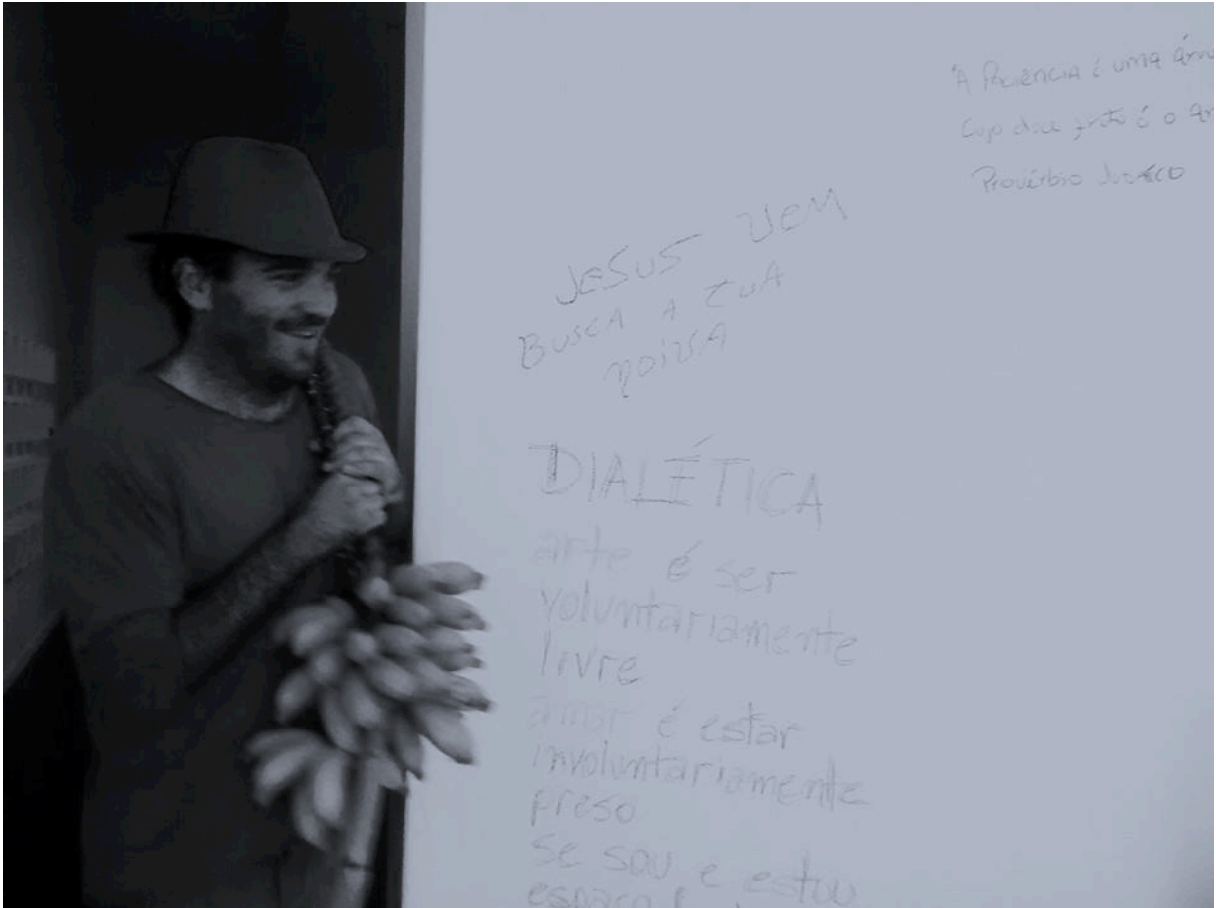 "A Paciência é uma
Cujo doce fruto é o
Provérbio
JESUS VEM
BUSCA A TUA
NOIVA
DIALÉTICA
arte é ser
voluntariamente
livre
amar é estar
involuntariamente
preso
se sou e estou
espaço